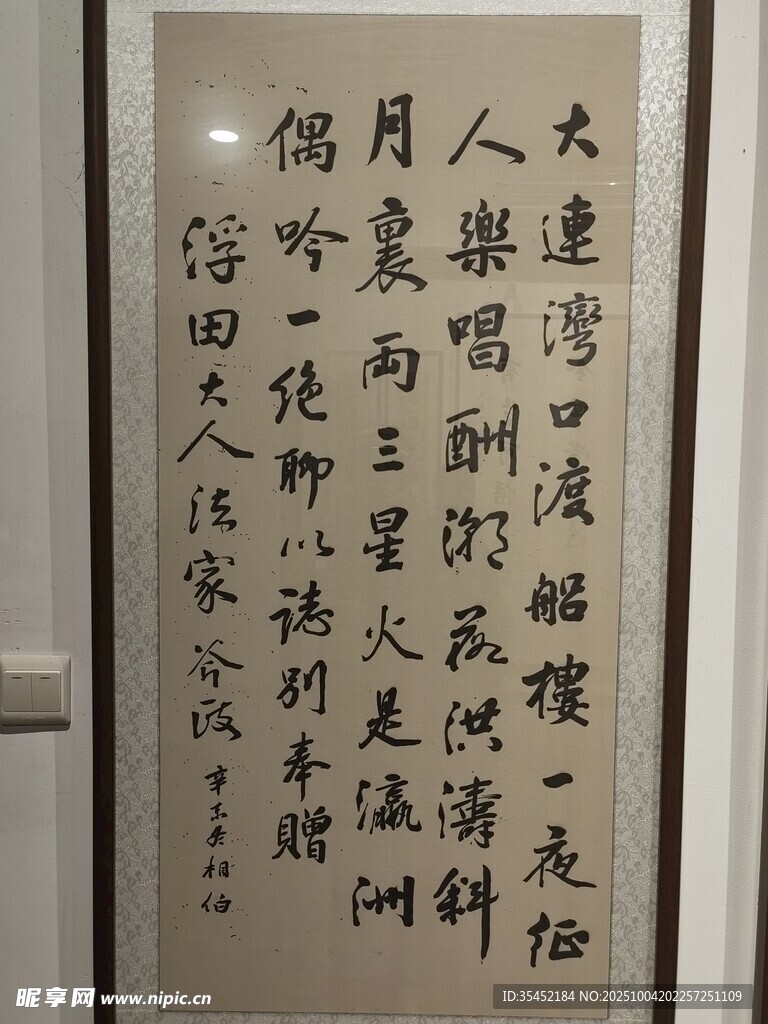 大連灣口渡船樓一夜征
人樂唱酬潮落洪濤斜
月裏両三星火是瀛洲
偶吟一絕聊以誌別奉贈
浮田大人法家政
辛未冬相伯
昵享网 www.nipic.cn
ID:35452184 NO:20251004202257251109